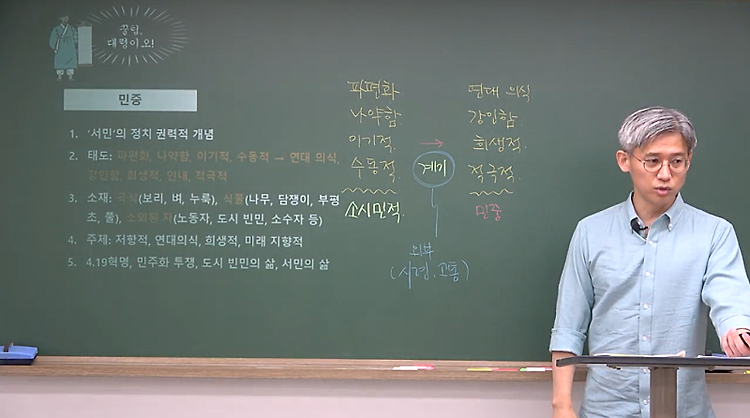 꿈틀,
대령이오!
민중
1. '서민'의 정치 권력적 개념
2. 태도: 파편화, 나약함, 이기적, 수동적 → 연대 의식,
강인함, 희생적, 인내, 적극적
3. 소재: 곡식(보리, 벼, 누룩), 식물(나무, 담쟁이, 부평
초, 풀), 소외된 자(노동자, 도시 빈민, 소수자 등)
4. 주제: 저항적, 연대의식, 희생적, 미래 지향적
5. 4.19혁명, 민주화 투쟁, 도시 빈민의 삶, 서민의 삶
파편화
나약함
이기적
수동적
소시민적.
→
계기
외부
(시련, 고통)
연대 의식
강인함.
희생적.
적극적.
민중